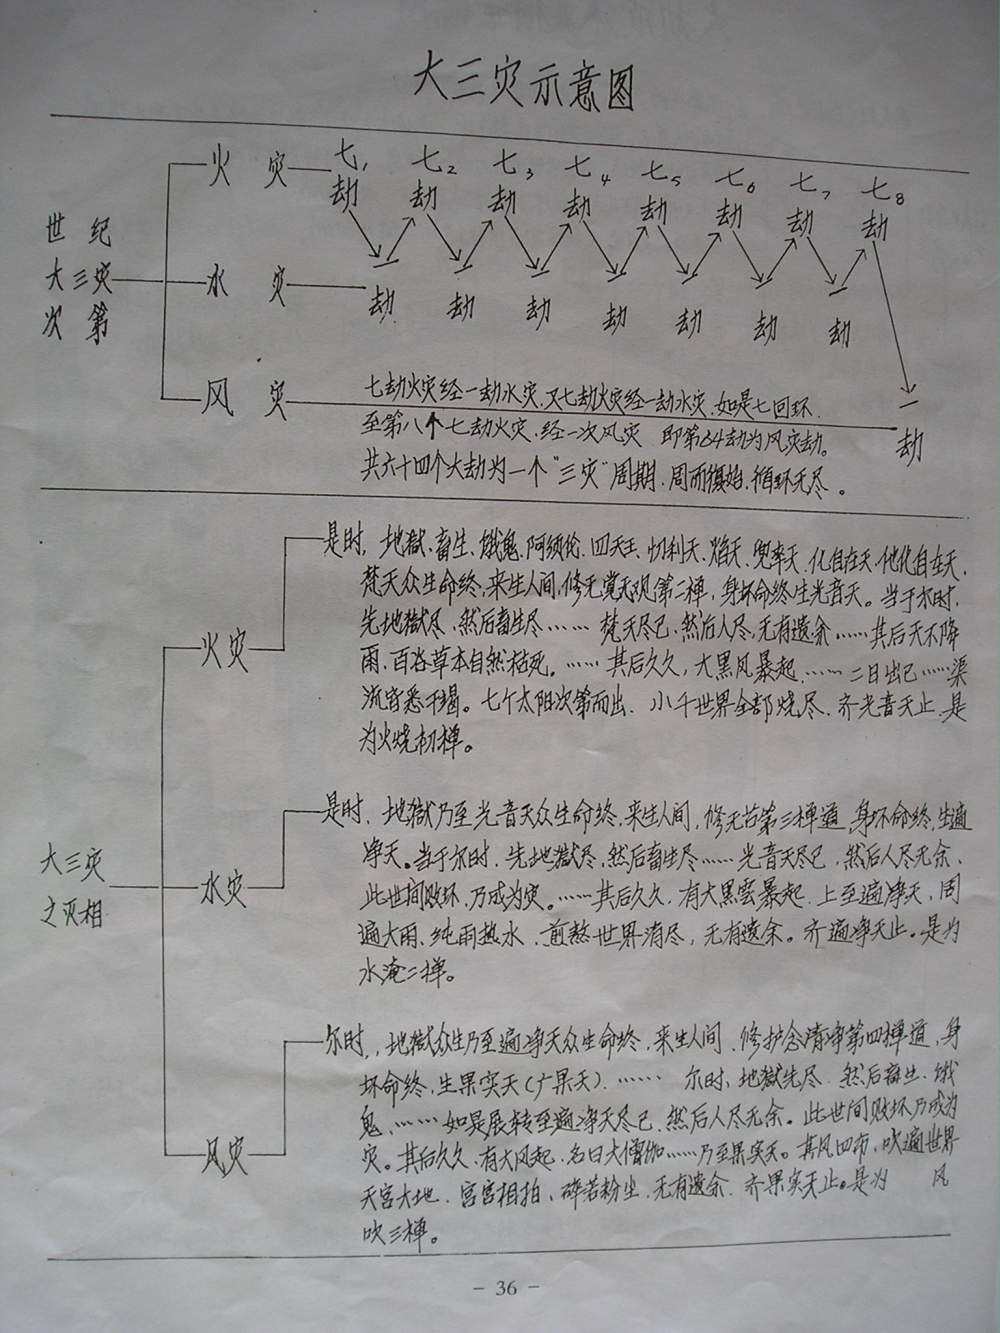 大三灾示意图
火 灾 七1 七2 七3 七4 七5 七6 七7 七8
劫 劫 劫 劫 劫 劫 劫 劫
世纪
大三灾
次第
水 灾 一 一 一 一 一 一 一
劫 劫 劫 劫 劫 劫 劫
风 灾 一
劫
七劫火灾经一劫水灾.又七劫火灾经一劫水灾.如是七回环.
至第八个七劫火灾.经一次风灾 即第64劫为风灾劫。
共六十四个大劫为一个“三灾”周期.周而復始.循环无尽。
大三灾
之灭相
火灾
是时,地獄、畜生、饿鬼、阿须伦.四天王、忉利天、焰天、兜率天、化自在天、他化自在天、
梵天众生命终,来生人间,修无觉无观第二禅,身坏命终,生光音天。当于尔时,
先地獄尽,然后畜生尽…… 梵天尽已,然后人尽,无有遗余……其后天不降
雨,百谷草本自然枯死。……其后久久,大黑风暴起……二日出已……渠
流皆悉干竭。七个太阳次第而出.小千世界全部烧尽.齐光音天止.是
为火烧初禅。
水灾
是时,地獄乃至光音天众生命终,来生人间,修无 第三禅道,身坏命终,生遍
净天。当于尔时,先地獄尽,然后畜生尽……光音天尽已,然后人尽无余、
此世间败坏,乃成为灾。……其后久久,有大黑雲暴起.上至遍净天,周
遍大雨、纯雨热水,煎熬世界消尽,无有遗余。齐遍净天止。是为
水淹二禅。
风灾
尔时,地獄众生乃至遍净天众生命终,来生人间.修护念清净第四禅道,身
坏命终,生果实天(广果天)…… 尔时,地獄先尽.然后畜生、饿
鬼……如是展转至遍净天尽已,然后人尽无余。此世间败坏乃成为
灾。其后久久,有大风起,名曰大僧伽……乃至果实天。其风四布,吹遍世界
天宫大地.宫宫相拍,碎若粉尘,无有遗余.齐果实天止。是为 风
吹三禅。
- 36 -